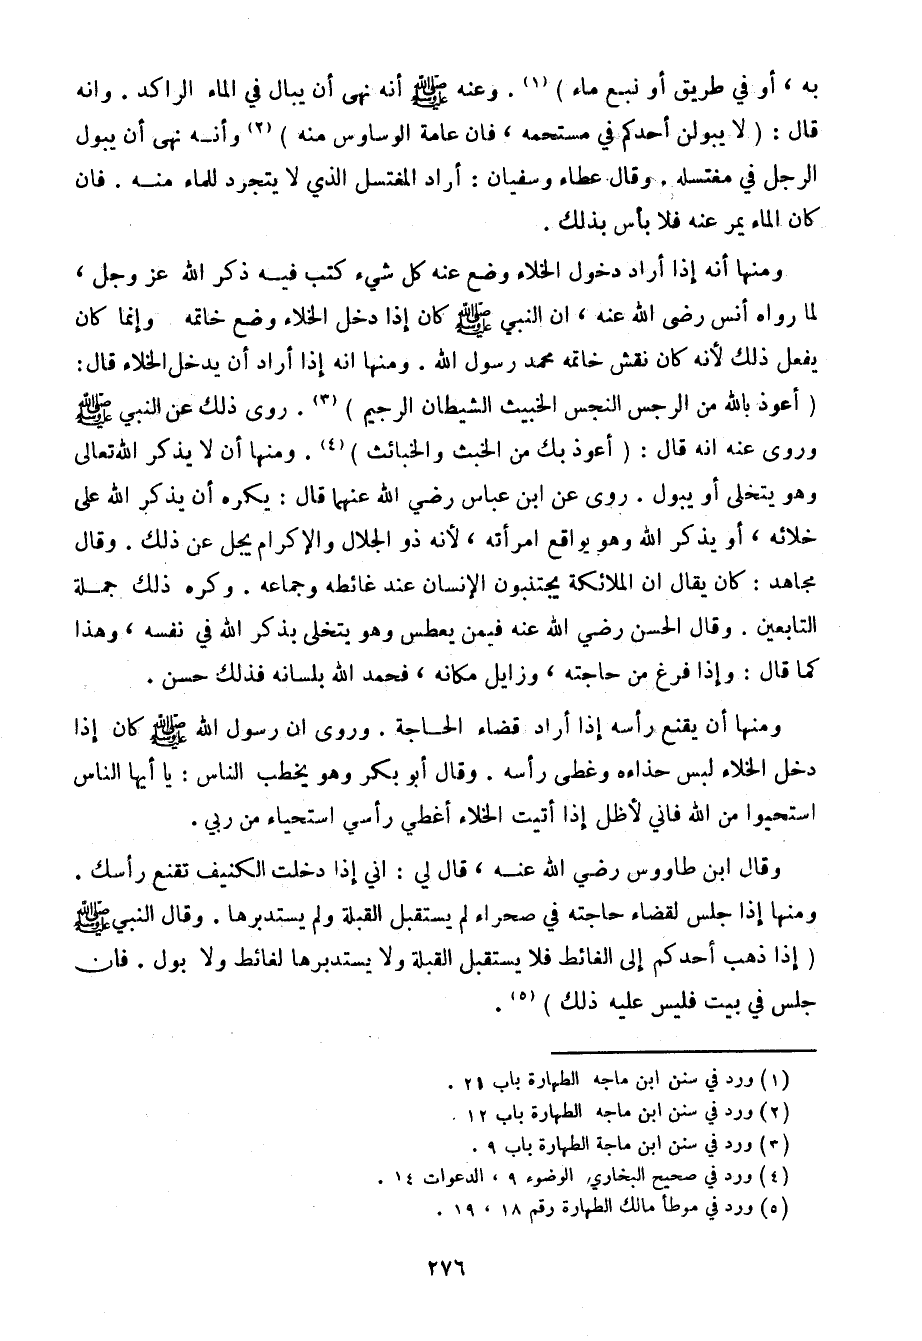 به ، أو في طريق أو نبع ماء ) (١) . وعنه ﷺ أنه نهى أن يبال في الماء الراكد . وانه
قال : ( لا يبولن أحدكم في مستحمه ، فان عامة الوساوس منه ) (٢) وأنـه نهى أن يبول
الرجل في مغتسله . وقال عطاء وسفيان : أراد المغتسل الذي لا يتجرد للماء منـه . فان
كان الماء يمر عنه فلا بأس بذلك .
ومنها أنه إذا أراد دخول الخلاء وضع عنه كل شيء كتب فيـه ذكر الله عز وجل ،
لما رواه أنس رضى الله عنه ، ان النبي ﷺ كان إذا دخل الخلاء وضع خاتمه وإنما كان
يفعل ذلك لأنه كان نقش خاتمه محمد رسول الله . ومنها انه إذا أراد أن يدخل الخلاء قال :
( أعوذ بالله من الرجس النجس الخبيث الشيطان الرجيم ) (٣) . روى ذلك عن النبي ﷺ
وروى عنه انه قال : ( أعوذ بك من الخبث والخبائث ) (٤) . ومنها أن لا يذكر الله تعالى
وهو يتخلى أو يبول . روى عن ابن عباس رضي الله عنهما قال : يكره أن يذكر الله على
خلائه ، أو يذكر الله وهو يواقع امرأته ، لأنه ذو الجلال والإكرام يجل عن ذلك . وقال
مجاهد : كان يقال ان الملائكة يجتنبون الإنسان عند غائطه وجماعه . وكره ذلك جمـلة
التابعين . وقال الحسن رضي الله عنه فيمن يعطس وهو يتخلى يذكر الله في نفسه ، وهذا
كما قال : وإذا فرغ من حاجته ، وزايل مكانه ، فحمد الله بلسانه فذلك حسن .
ومنها أن يقنع رأسه إذا أراد قضاء الحـاجة . وروى ان رسول الله ﷺ كان إذا
دخل الخلاء لبس حذاءه وغطى رأسه . وقال أبو بكر وهو يخطب الناس : يا أيها الناس
استحيوا من الله فاني لأظل إذا أتيت الخلاء أغطي رأسي استحياء من ربي .
وقال ابن طاووس رضي الله عنـه ، قال لي : اني إذا دخلت الكنيف تقنع رأسك .
ومنها إذا جلس لقضاء حاجته في صحراء لم يستقبل القبلة ولم يستدبرها . وقال النبي ﷺ
( إذا ذهب أحدكم إلى الغائط فلا يستقبل القبلة ولا يستدبرها لغائط ولا بول . فان
جلس في بيت فليس عليه ذلك ) (٥) .
(١) ورد في سنن ابن ماجه الطهارة باب ٢١ .
(٢) ورد في سنن ابن ماجه الطهارة باب ١٢ .
(٣) ورد في سنن ابن ماجة الطهارة باب ٩ .
(٤) ورد في صحيح البخاري الوضوء ٩ ، الدعوات ١٤ .
(٥) ورد في موطأ مالك الطهارة رقم ١٨ ، ١٩ .
٢٧٦